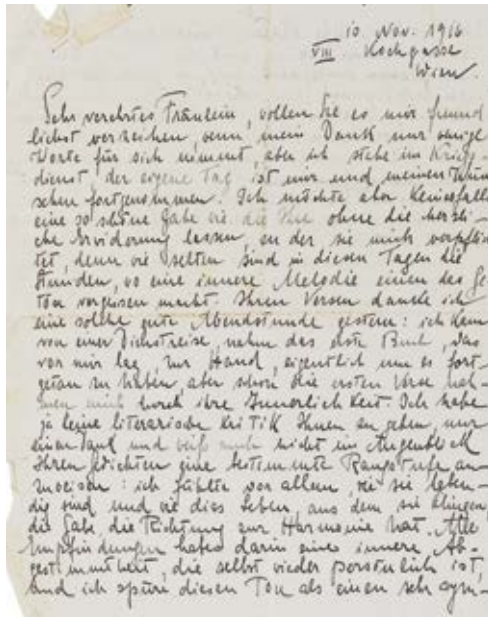 10 Nov. 1916
VIII Kochgasse
Wien.
Sehr verehrtes Fräulein, wollen Sie es mir freund
lichst verzeihen, wenn mein Dank nur wenige
Worte für sich nimmt, aber ich stehe im Kriegs
dienst, der eigene Tag ist mir und meinen Wün
schen fortgenommen. Ich möchte aber keinesfalls
eine so schöne Gabe wie die Ihre ohne die herzli
che Erwiderung lassen, zu der sie mich verpflich
tet, denn wie selten sind in diesen Tagen die
Stunden, wo eine innere Melodie einen das Ge
tön vergessen macht. Ihren Versen danke ich
eine solche gute Abendstunde gestern: ich kam
von einer Dienstreise, nahm das erste Buch, das
vor mir lag, zur Hand, eigentlich um es fort-
getan zu haben, aber schon die ersten Verse nah-
men mich durch ihre Innerlichkeit. Ich habe
ja keine literarische Kritik Ihnen zu geben, nur
einen Dank und weiß auch nicht im Augenblick
Ihren Gedichten eine bestimmte Rangstufe an-
zuweisen: ich fühlte vor allem, wie sie leben-
dig sind und wie dies Leben, aus dem sie klingen,
die Gabe, die Richtung zur Harmonie hat. Alle
Empfindungen haben darin eine innere Ab-
gestimmtheit, die selbst wieder persönlich ist,
und ich spüre diesen Ton als einen sehr sym-